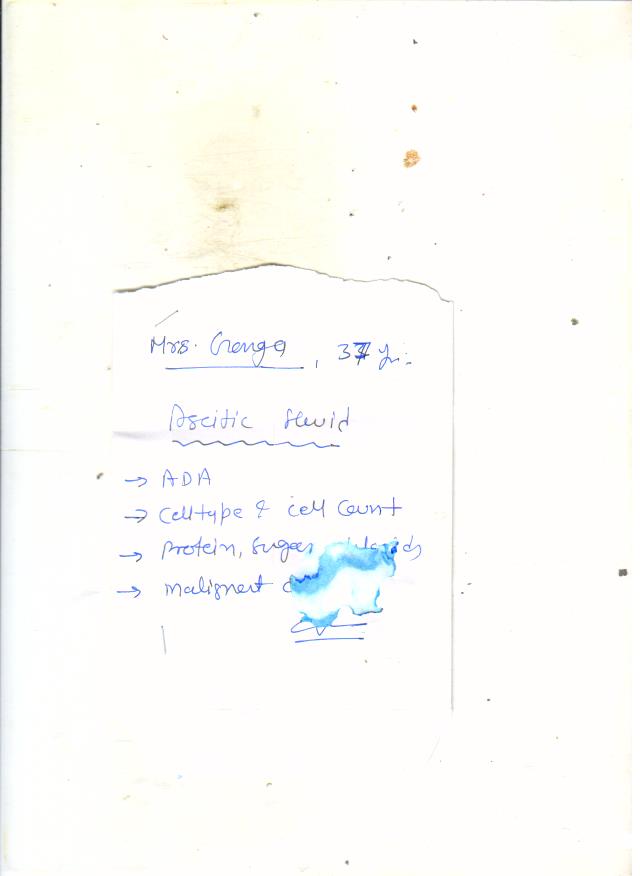 Mrs. Ganga, 37 Yrs.
Ascitic fluid
→ ADA
→ Cell type & cell Count
→ Protein, Sugar,
→ malignant